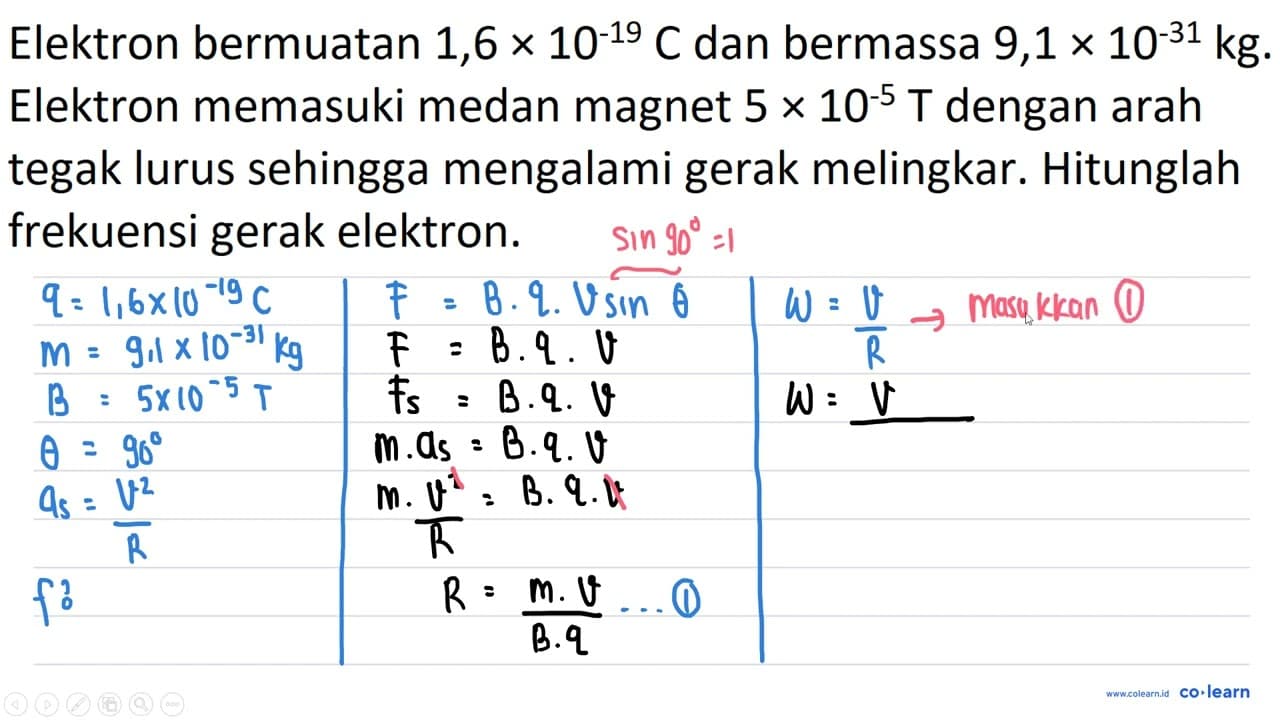 Elektron bermuatan 1,6 × 10⁻¹⁹ C dan bermassa 9,1 × 10⁻³¹ kg.
Elektron memasuki medan magnet 5 × 10⁻⁵ T dengan arah
tegak lurus sehingga mengalami gerak melingkar. Hitunglah
frekuensi gerak elektron.
sin 90° = 1
q = 1,6 × 10⁻¹⁹ C
m = 9,1 × 10⁻³¹ kg
B = 5 × 10⁻⁵ T
θ = 90°
as = V²/R
f?
F = B. q. V sin θ
F = B. q. V
Fs = B. q. V
m. as = B. q. V
m. V²/R = B. q. V
R = m. V/B. q ... ①
W = V/R → masukkan ①
W = V
www.colearn.id co·learn